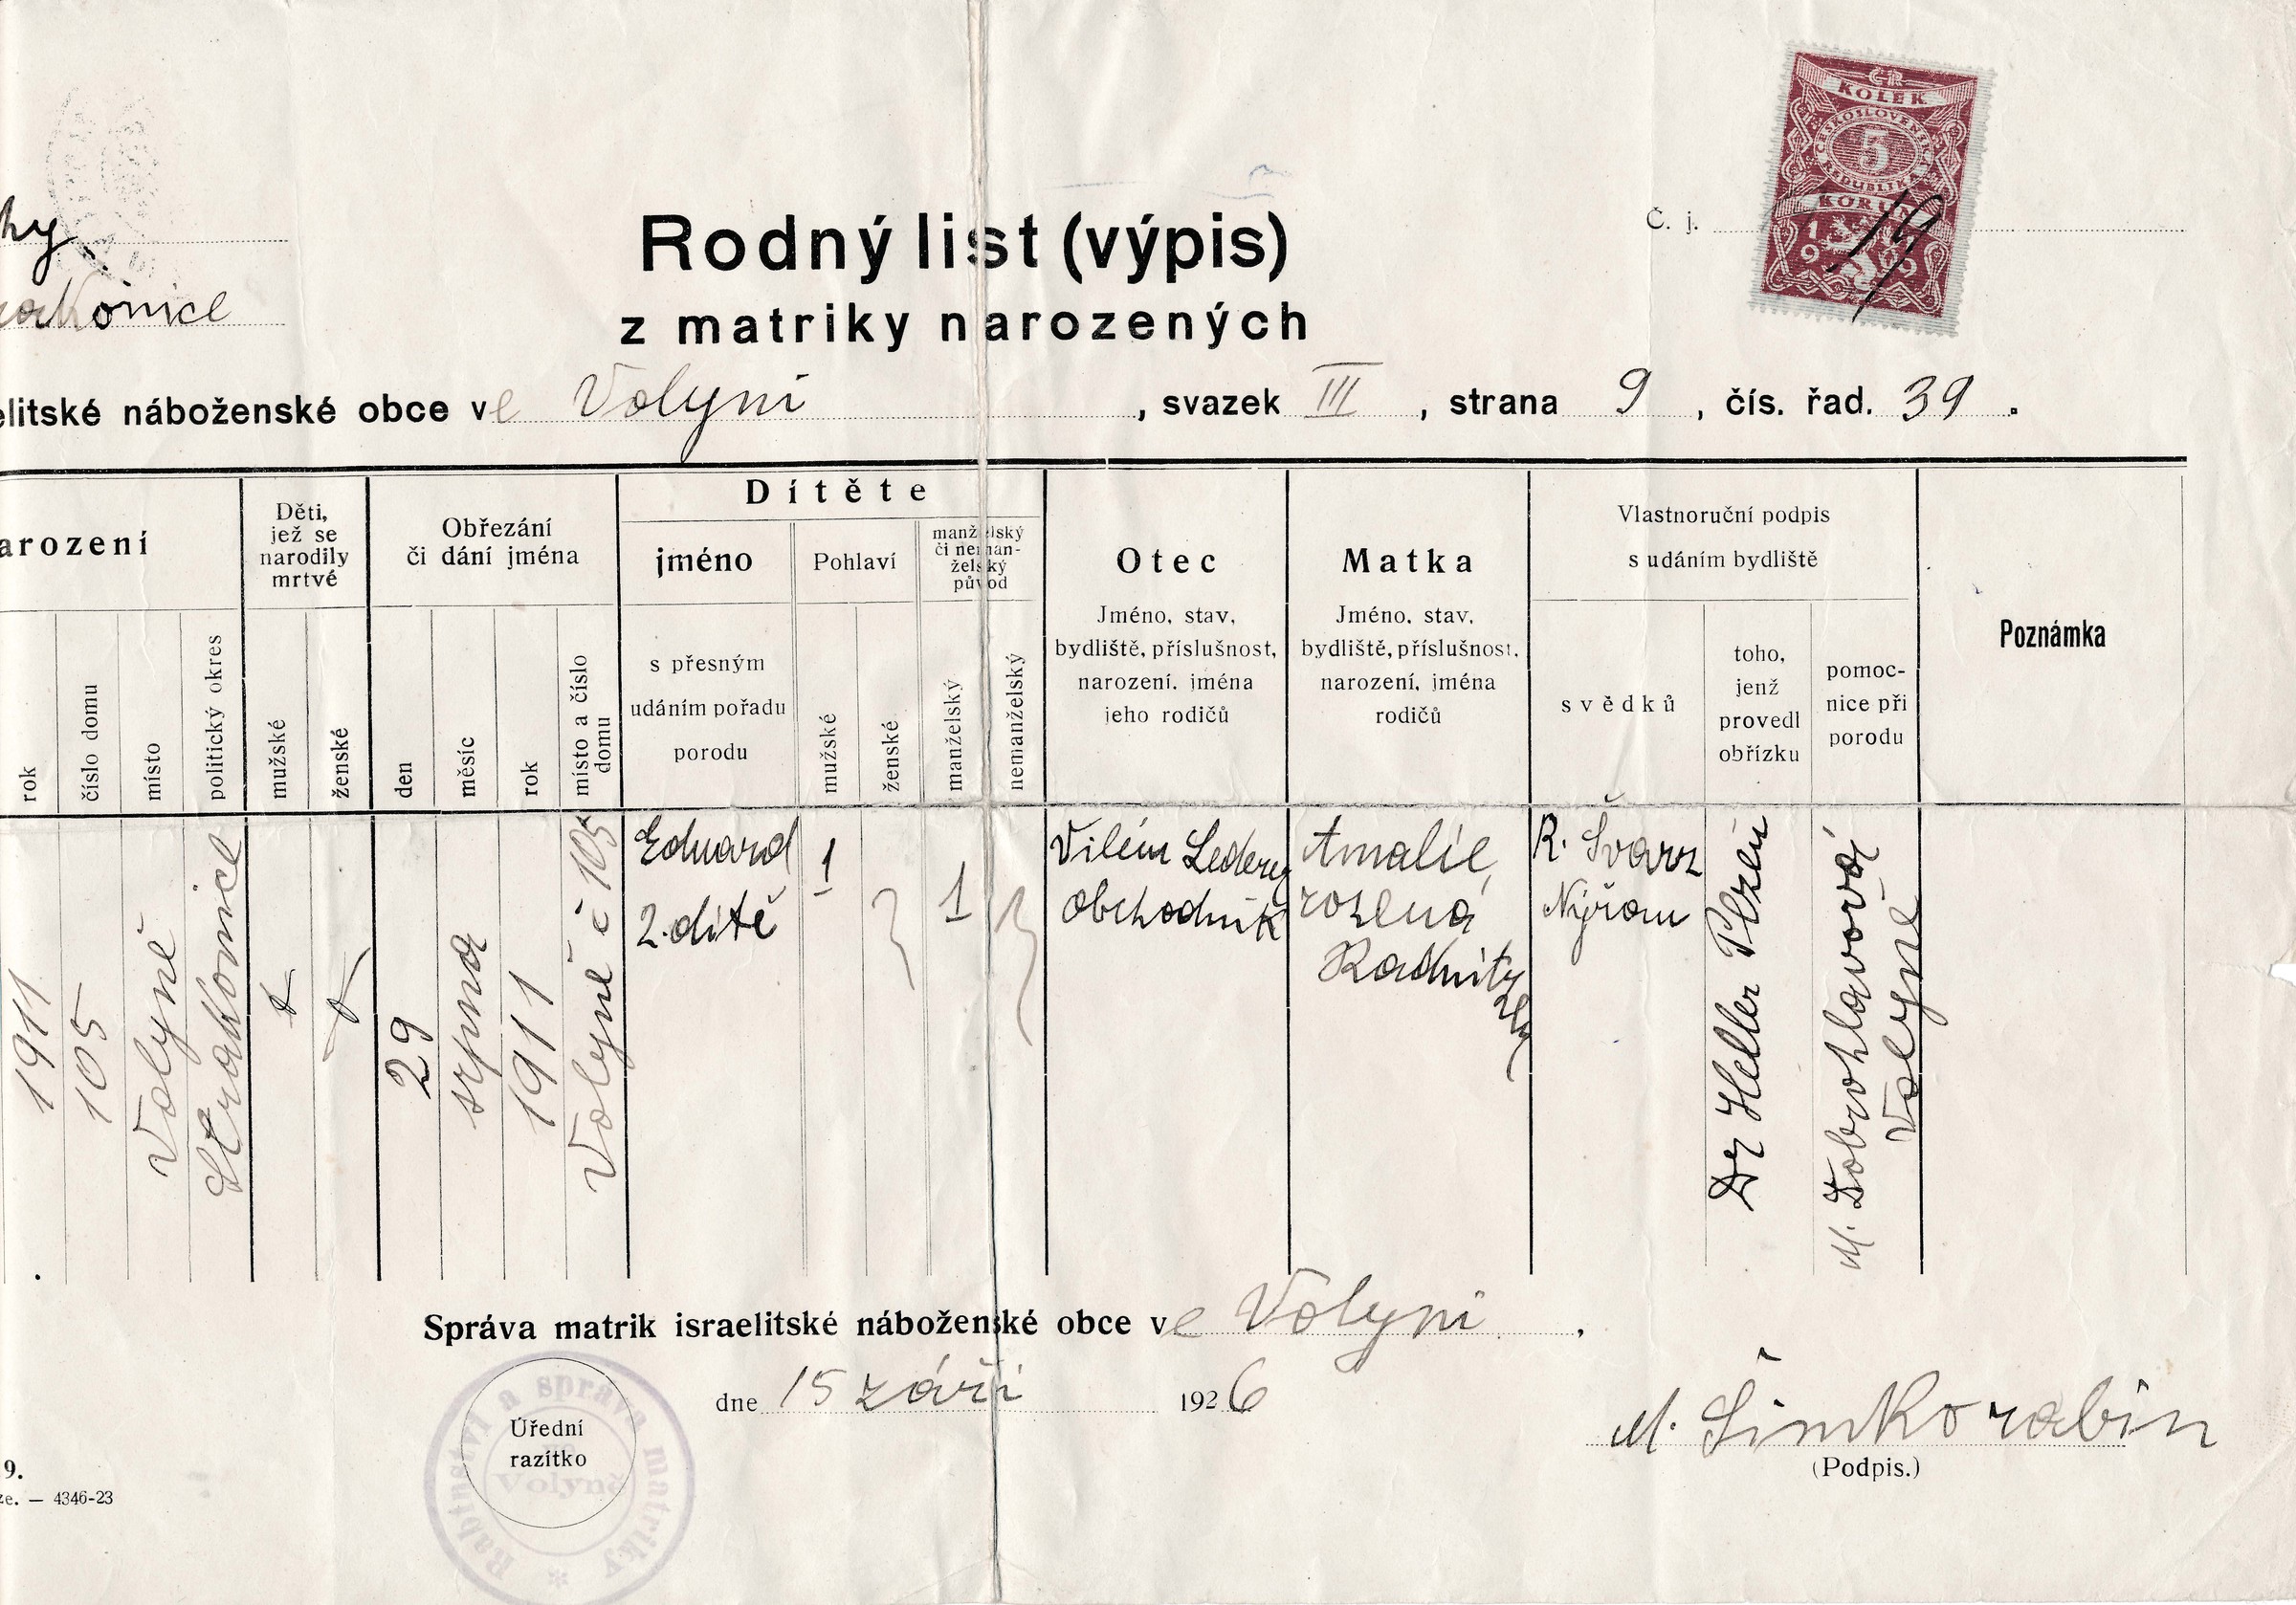 Č. j.
ČR
KOLEK
ČESKOSLOVENSKÁ
5
REPUBLIKA
KORUN
19 19
Rodný list (výpis)
onice
z matriky narozených
elitské náboženské obce ve Volyni, svazek III, strana 9, čís. řad. 39.
arození
Děti, jež se narodily mrtvé
Obřezání či dání jména
Dítěte
jméno
Pohlaví
manželský či nemanželský původ
Otec
Matka
Vlastnoruční podpis s udáním bydliště
Poznámka
rok
číslo domu
místo
politický okres
mužské
ženské
den
měsíc
rok
místo a číslo domu
s přesným udáním pořadu porodu
mužské
ženské
manželský
nemanželský
Jméno, stav, bydliště, příslušnost, narození, jména jeho rodičů
Jméno, stav, bydliště, příslušnost, narození, jména rodičů
svědků
toho, jenž provedl obřízku
pomocnice při porodu
1911
105
Volyně
Strakonice
29
srpna
1911
Volyně č 105
Eduard
2. dítě
1
1
Vilém Lederer
obchodník
Amalie,
rozená
Radnitzky
R. Švarz
Nýřan
Dr Heller Plzeň
M. Dobrohlavová
Volyně
Správa matrik israelitské náboženské obce ve Volyni,
dne 15 září 1926
Úřední
razítko
Rabinství a správa matriky
Volyně
M. Šimko rabin
(Podpis.)
9.
ze. — 4346-23